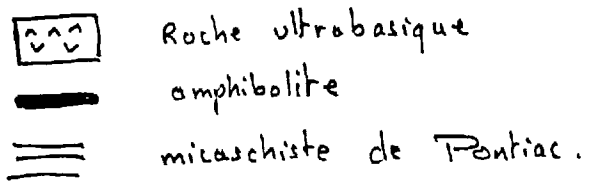 Roche ultrabasique
amphibolite
micaschiste de Pontiac.